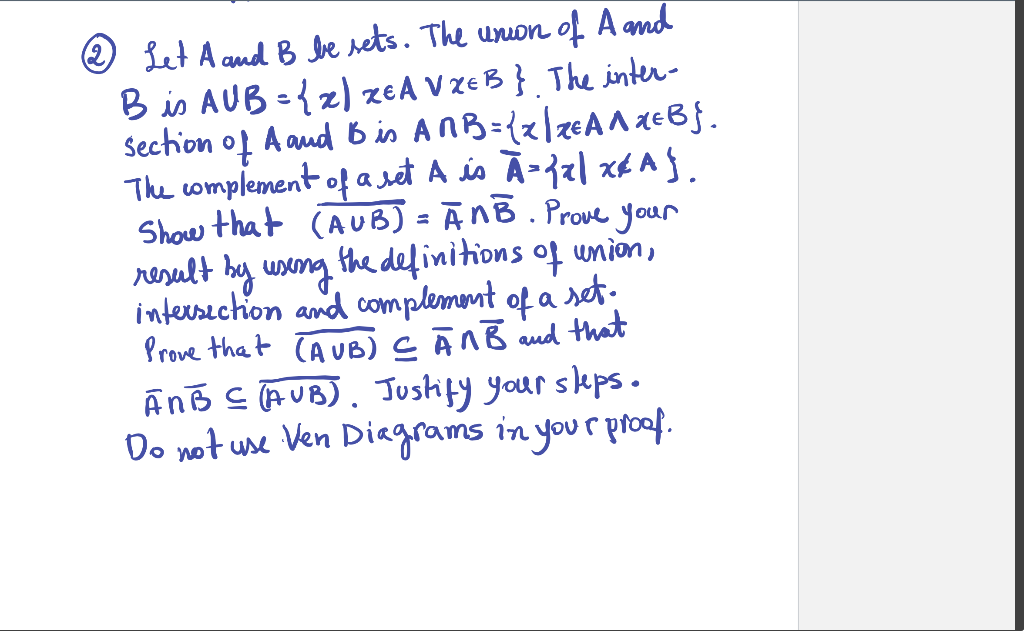 ② Let A and B be sets. The union of A and
B is A∪B = {x| x∈A ∨ x∈B}. The inter-
section of A and B is A∩B={x|x∈A∧x∈B}.
The complement of a set A is A̅={x| x∉A}.
Show that \overline{(A∪B)} = A̅∩B̅. Prove your
result by using the definitions of union,
intersection and complement of a set.
Prove that \overline{(A∪B)} ⊆ A̅∩B̅ and that
A̅∩B̅ ⊆ \overline{(A∪B)}. Justify your steps.
Do not use Ven Diagrams in your proof.